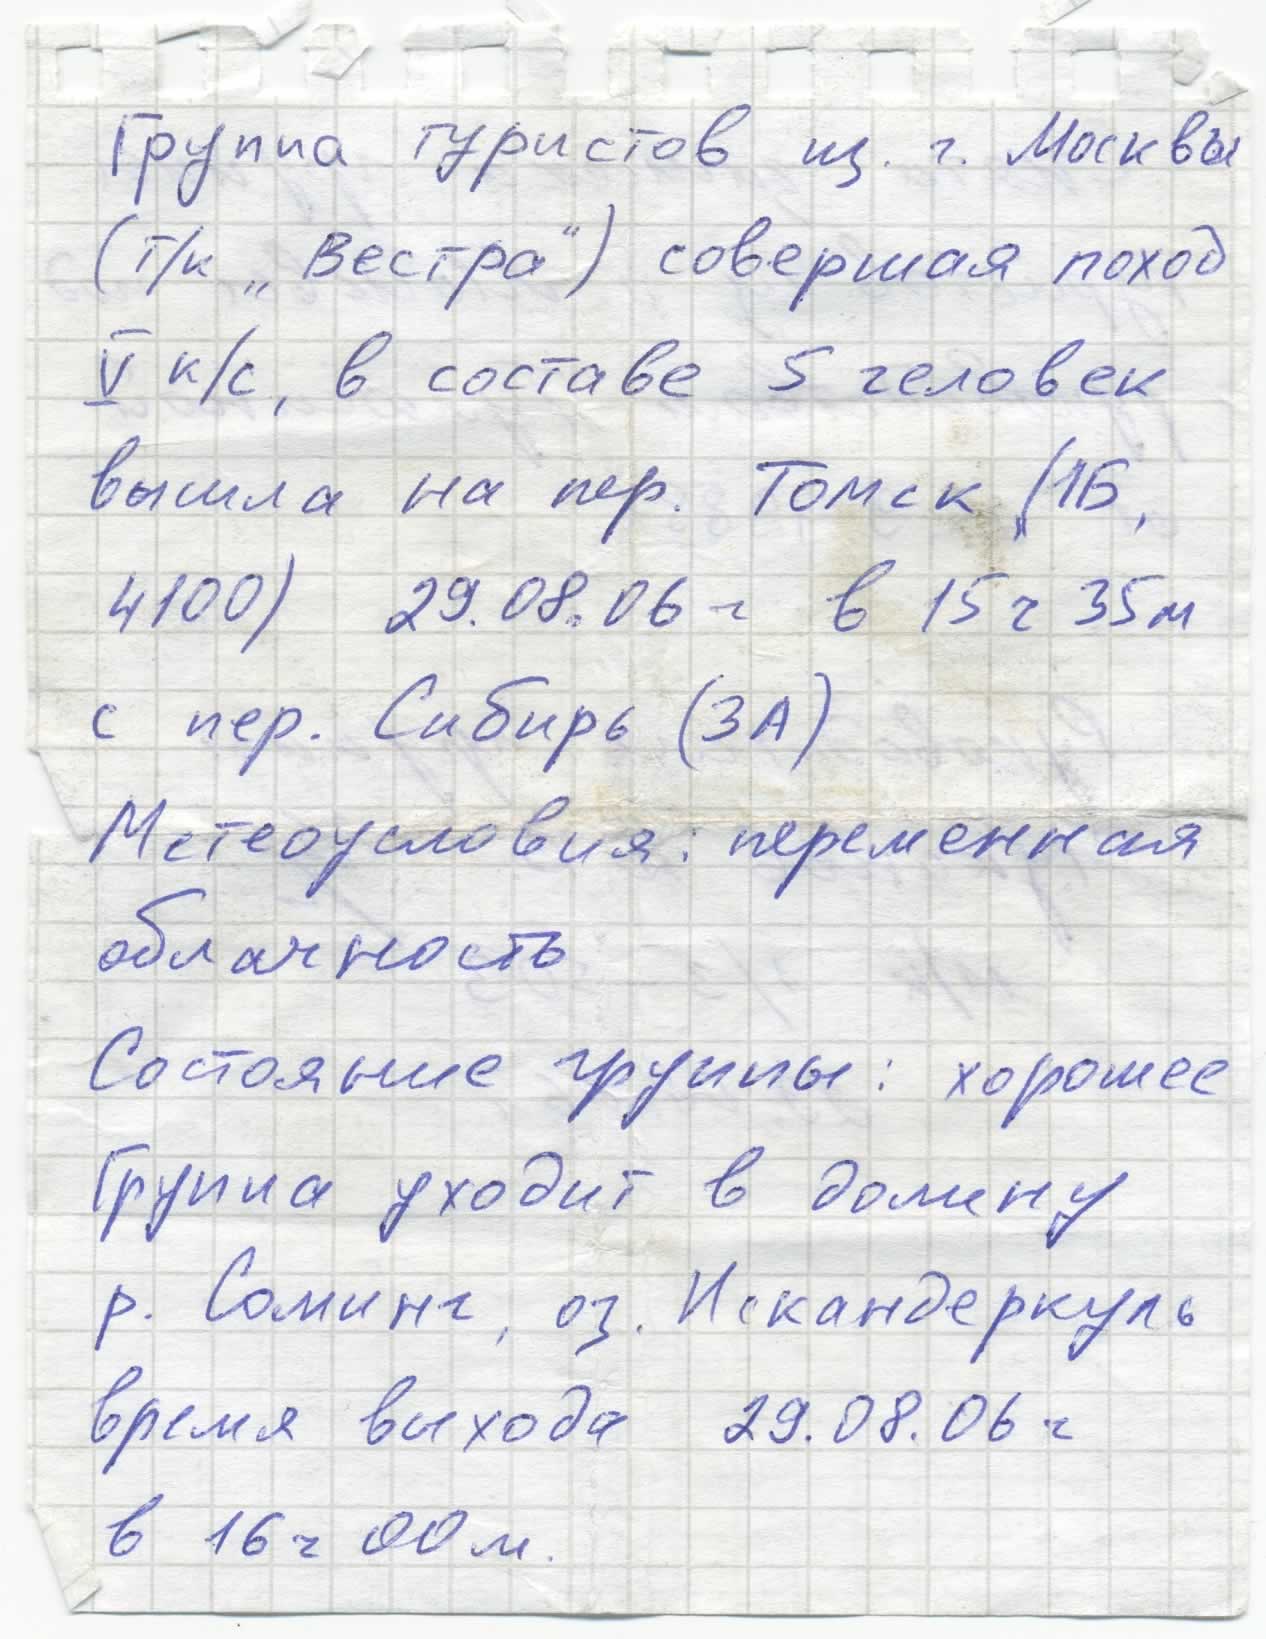 Группа туристов из. г. Москвы
(т/к „Вестра“) совершая поход
V к/с, в составе 5 человек
вышла на пер. Томск (1Б,
4100) 29.08.06 г в 15ч 35м
с пер. Сибирь (3А)
Метеоусловия: переменная
облачность
Состояние группы: хорошее
Группа уходит в долину
р. Саминг, оз. Искандеркуль
время выхода 29.08.06 г
в 16ч 00м.